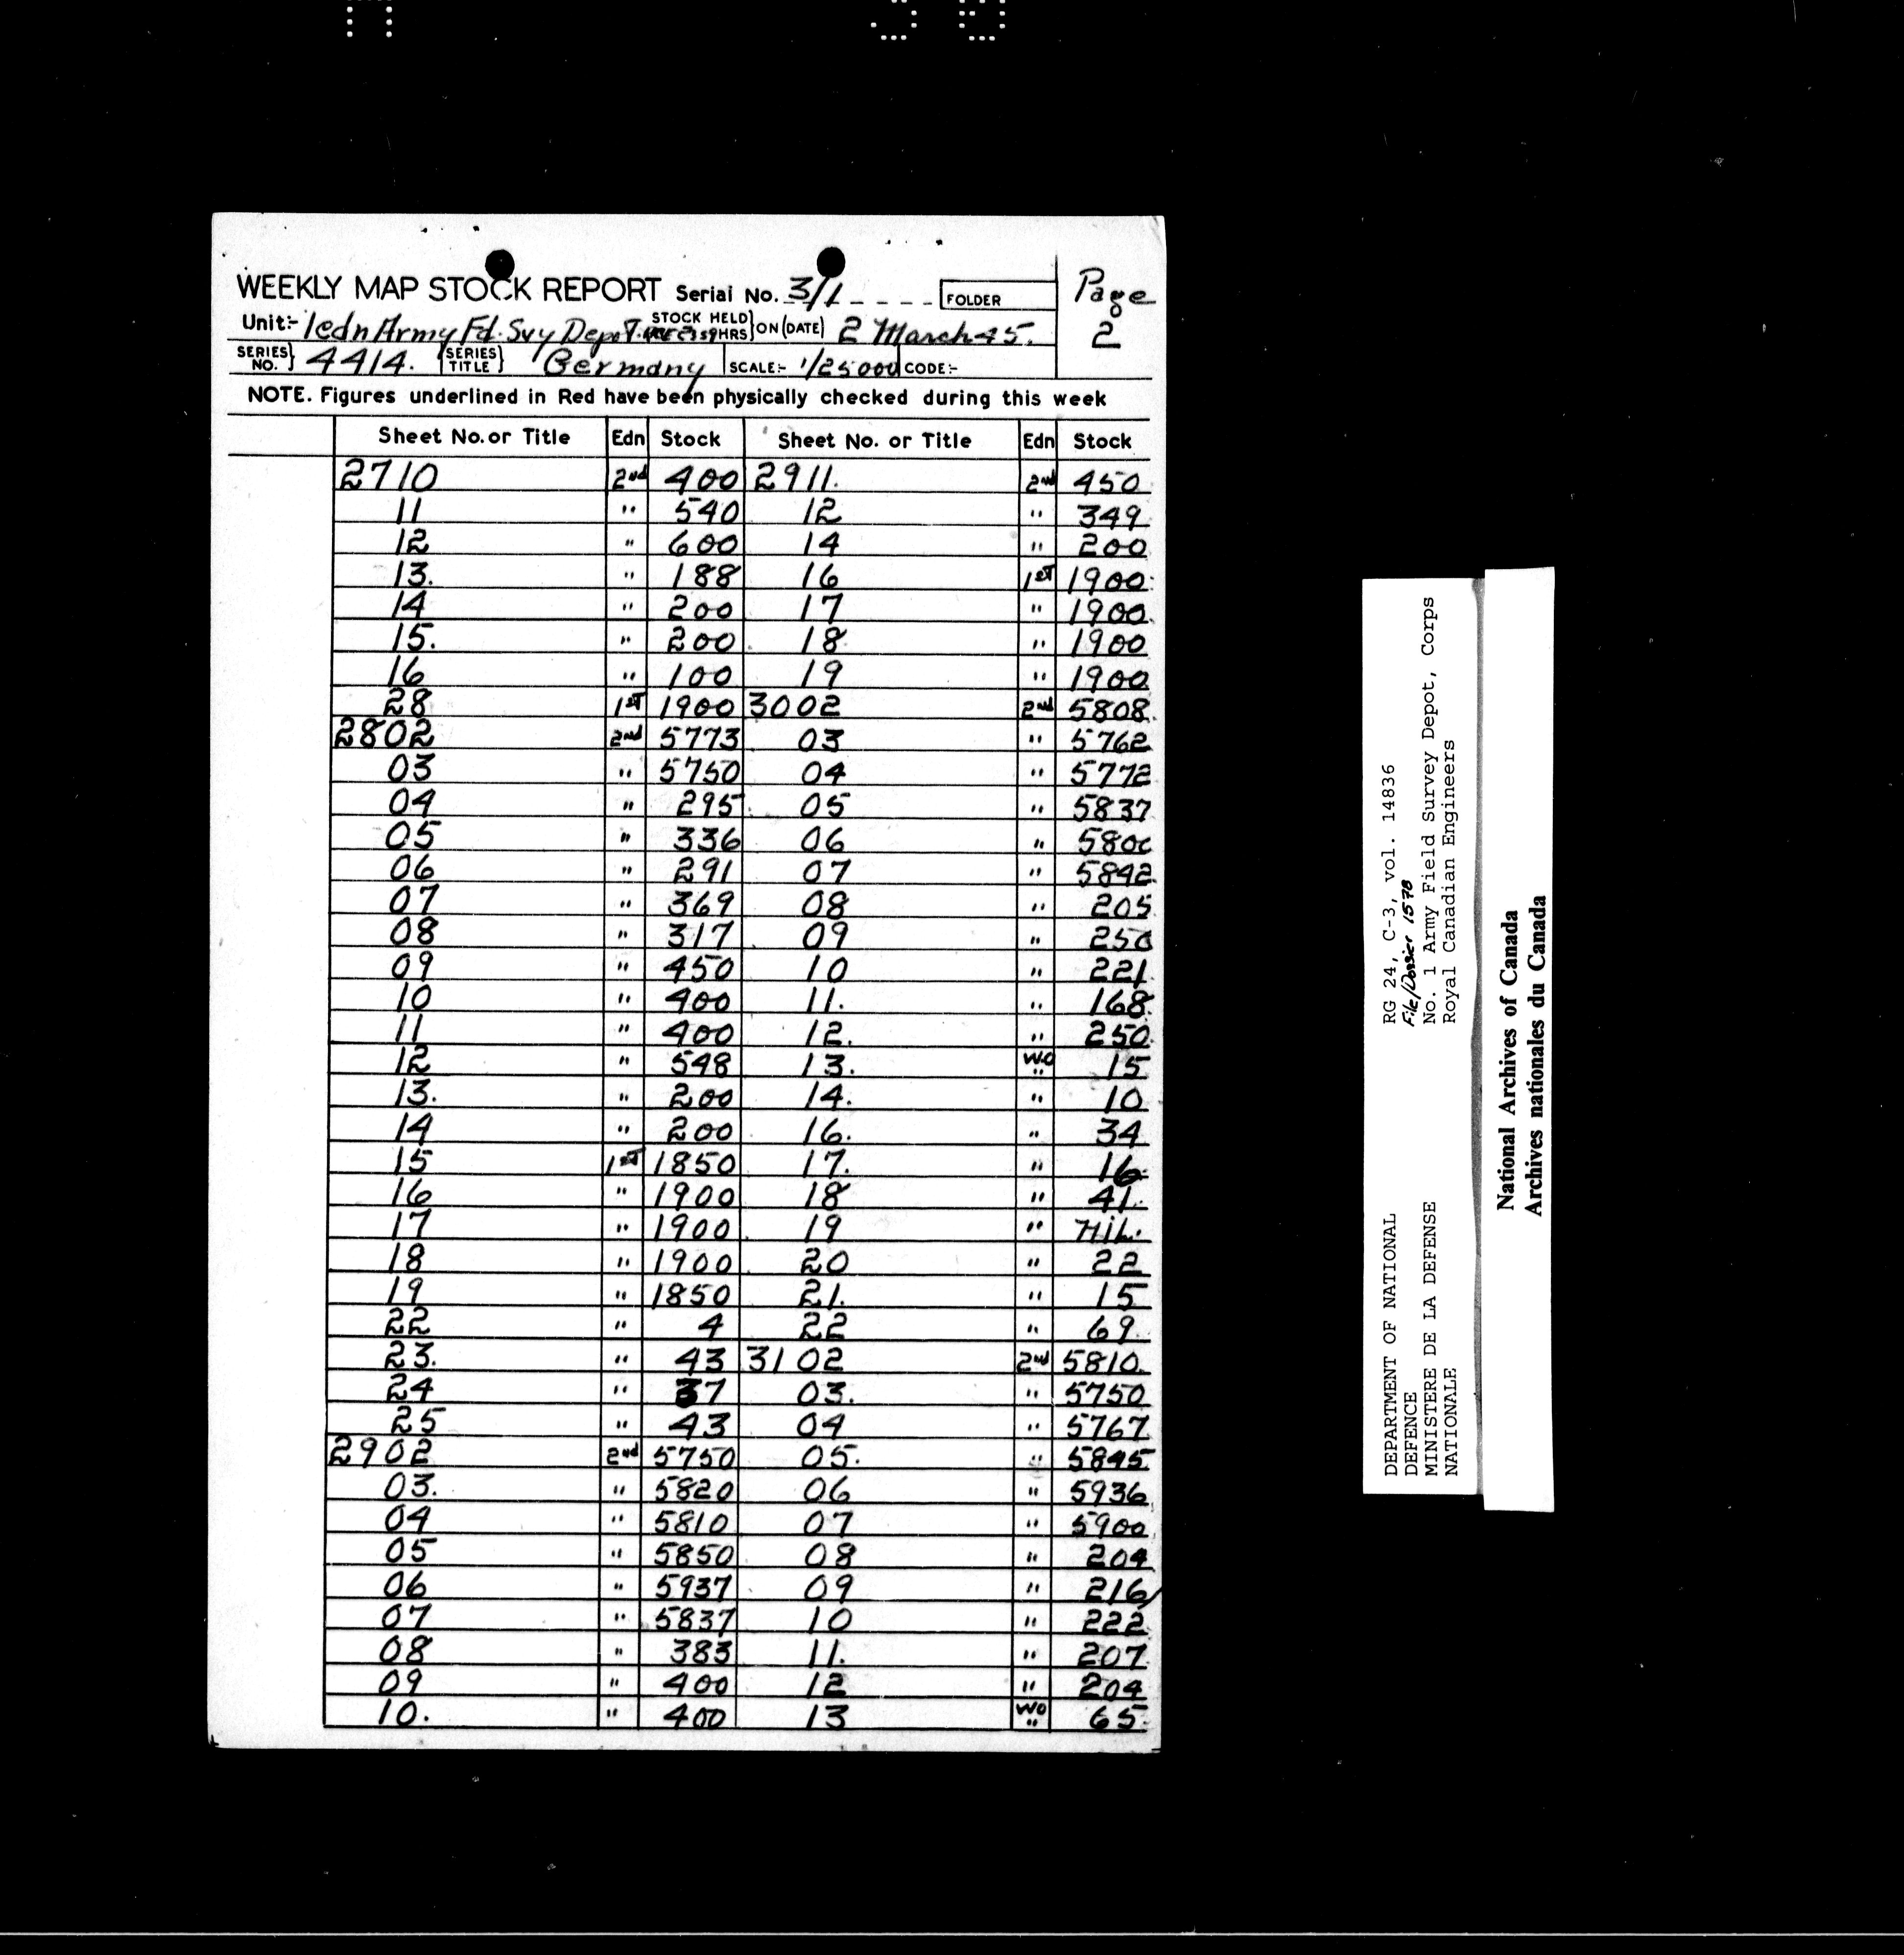 WEEKLY MAP STOCK REPORT Serial No. 3/1 FOLDER Page 2
Unit:- 1 Cdn Army Fd. Svy Depot. STOCK HELD HRS} ON (DATE) 2 March 45.
SERIES NO.} 4414. {SERIES TITLE} Germany SCALE:- 1/25000 CODE:-
NOTE. Figures underlined in Red have been physically checked during this week
Sheet No. or Title Edn Stock Sheet No. or Title Edn Stock
2710 2nd 400 2911. 2nd 450
11 " 540 12 " 349
12 " 600 14 " 200
13. " 188 16 1st 1900
14 " 200 17 " 1900
15. " 200 18 " 1900
16 " 100 19 " 1900
28 1st 1900 3002 2nd 5808
2802 2nd 5773 03 " 5762
03 " 5750 04 " 5772
04 " 295 05 " 5837
05 " 336 06 "
06 " 291 07 " 5842
07 " 369 08 " 205
08 " 317 09 " 250
09 " 450 10 " 221
10 " 400 11. " 168
11 " 400 12. " 250
12 " 548 13. W.O " 15
13. " 200 14. " 10
14 " 200 16. " 34
15 1st 1850 17. " 16
16 " 1900 18 " 41.
17 " 1900 19 " NIL.
18 " 1900 20 " 22
19 " 1850 21. " 15
22 " 4 22 " 69
23. " 43 3102 2nd 5810
24 " 37 03. " 5750
25 " 43 04 " 5767
2902 2nd 5750 05. " 5845
03. " 5820 06 " 5936
04 " 5810 07 " 5900
05 " 5850 08 " 204
06 " 5937 09 " 216
07 " 5837 10 " 222
08 " 383 11. " 207
09 " 400 12 " 204
10. " 400 13 WO " 65
DEPARTMENT OF NATIONAL DEFENCE
MINISTERE DE LA DEFENSE NATIONALE
RG 24, C-3, vol. 14836
File/Dossier 1578
No. 1 Army Field Survey Depot, Corps
Royal Canadian Engineers
National Archives of Canada
Archives nationales du Canada